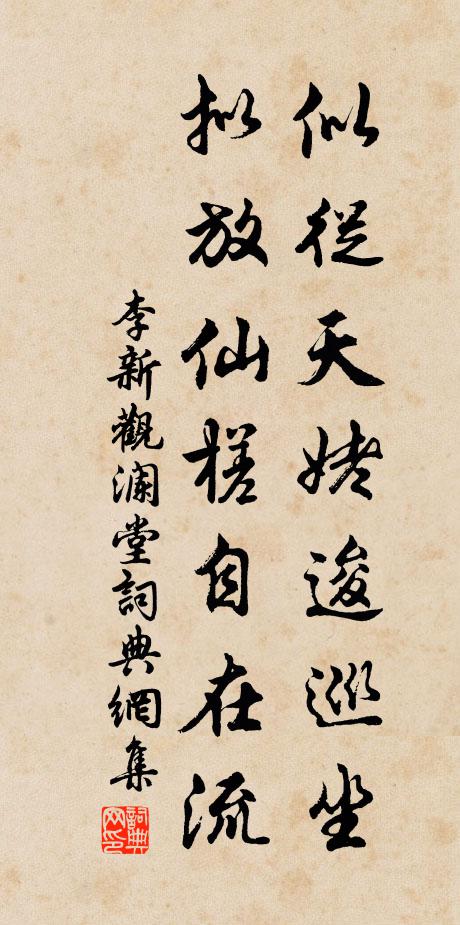 似從天姥逡巡坐
拟放仙槎自在流
李新觀瀾堂詞典網集
詞典
网印